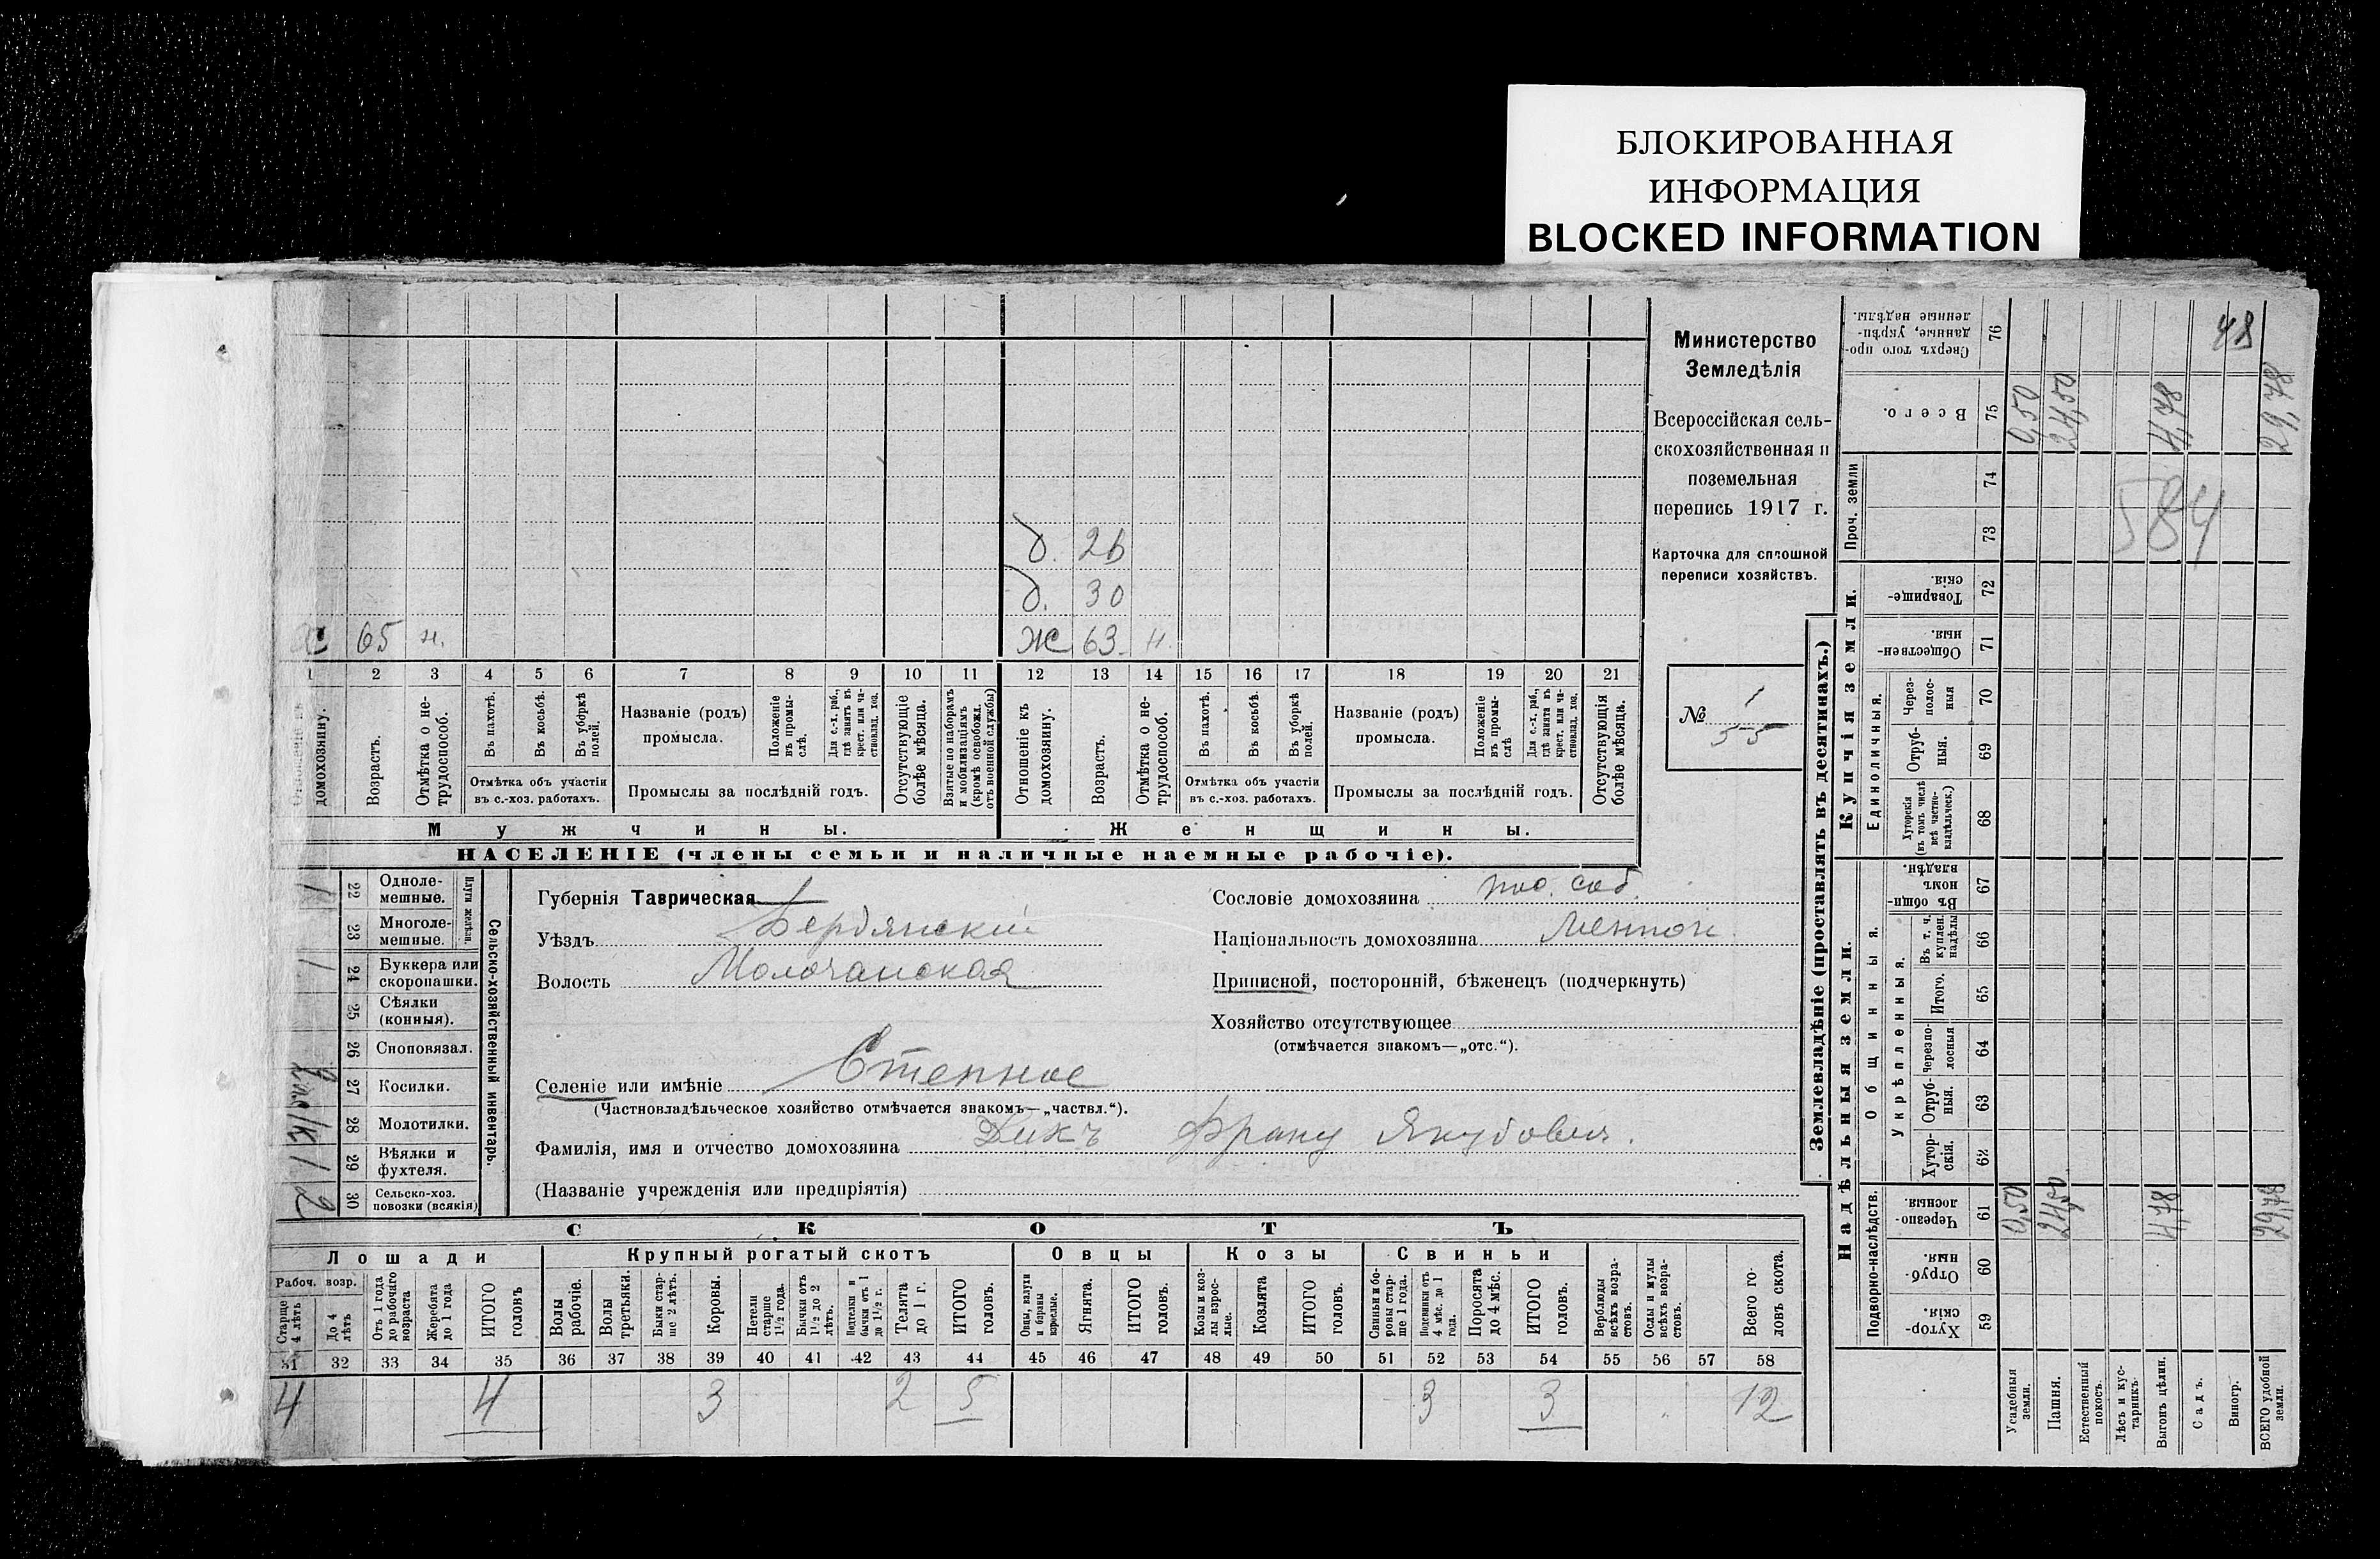 БЛОКИРОВАННАЯ
ИНФОРМАЦИЯ
BLOCKED INFORMATION
Министерство
Земледѣлія
Всероссійская сель-
скохозяйственная и
поземельная
перепись 1917 г.
Карточка для сплошной
переписи хозяйствъ.
№ 1
55
д. 26
д. 30
х 65 н. Ж 63 н.
1 2 3 4 5 6 7 8 9 10 11 12 13 14 15 16 17 18 19 20 21
домохозяину.
Возрастъ.
Отмѣтка о не-
трудоспособ.
Въ пахотѣ.
Въ косьбѣ.
Въ уборкѣ
полей.
Отмѣтка объ участіи
въ с.-хоз. работахъ.
Названіе (родъ)
промысла.
Положеніе
въ промы-
слѣ.
Для с.-х. раб.,
гдѣ занятъ въ
крест. или ча-
стновлад. хоз.
Промыслы за послѣдній годъ.
Отсутствующіе
болѣе мѣсяца.
Взятые по наборамъ
и мобилизаціямъ
(кромѣ освобожд.
отъ военной службы)
Отношеніе къ
домохозяину.
Возрастъ.
Отмѣтка о не-
трудоспособ.
Въ пахотѣ.
Въ косьбѣ.
Въ уборкѣ
полей.
Отмѣтка объ участіи
въ с.-хоз. работахъ.
Названіе (родъ)
промысла.
Положеніе
въ промы-
слѣ
Для с.-х. раб.,
гдѣ занята въ
крест. или ча-
стновлад. хоз.
Промыслы за послѣдній годъ.
Отсутствующія
болѣе мѣсяца.
Мужчины.
Женщины.
НАСЕЛЕНІЕ (члены семьи и наличные наемные рабочіе).
Сельско-хозяйственный инвентарь.
22 Одноле-
мешные.
23 Многоле-
мешные.
24 Буккера или
скоропашки.
25 Сѣялки
(конныя).
26 Сноповязал.
27 Косилки.
28 Молотилки.
29 Вѣялки и
фухтеля.
30 Сельско-хоз.
повозки (всякія)
2
Губернія Таврическая
Уѣздъ Бердянскій
Волость Молочанская
Селеніе или имѣніе Степное
(Частновладѣльческое хозяйство отмѣчается знакомъ—„частвл.“).
Фамилія, имя и отчество домохозяина Дикъ Франц Якубович.
(Названіе учрежденія или предпріятія)
Сословіе домохозяина пос. соб.
Національность домохозяина Меннон.
Приписной, посторонній, бѣженецъ (подчеркнуть)
Хозяйство отсутствующее
(отмѣчается знакомъ—„отс.“).
СКОТЪ
Лошади
Крупный рогатый скотъ
Овцы
Козы
Свиньи
Рабоч. возр.
Старше
4 лѣтъ
До 4
лѣтъ
Отъ 1 года
до рабочаго
возраста
Жеребята
до 1 года
ИТОГО
головъ
Волы
рабочіе.
Волы
третьяки.
Быки стар-
ше 2 лѣтъ.
Коровы.
Нетели
старше
1½ года.
Бычки отъ
1½ до 2
лѣтъ.
Подтелки и
бычки отъ 1
до 1½ г.
Телята
до 1 г.
ИТОГО
головъ.
Овцы, валухи
и бараны
взрослые.
Ягнята.
ИТОГО
головъ.
Козы и коз-
лы взрос-
лые.
Козлята
ИТОГО
головъ.
Свиньи и бо-
ровы стар-
ше 1 года.
Подсвинки отъ
4 мѣс. до 1
года.
Поросята
до 4 мѣс.
ИТОГО
головъ.
Верблюды
всѣхъ возра-
стовъ.
Ослы и мулы
всѣхъ возра-
стовъ.
Всего го-
ловъ скота.
31 32 33 34 35 36 37 38 39 40 41 42 43 44 45 46 47 48 49 50 51 52 53 54 55 56 57 58
4 4 3 2 5 3 3 12
Землевладѣніе (проставлять въ десятинахъ.)
Надѣльныя земли.
Купчія земли.
Проч. земли
Подворно-наслѣдств.
Общинныя.
Укрѣпленныя.
Единоличныя.
Сверхъ того про-
данные, укрѣп-
ленные надѣлы.
76
Всего.
75
74
73
Товарище-
скія.
72
Обществен-
ныя.
71
Через-
полос-
ныя
70
Отруб-
ныя.
69
Хуторскія
(въ томъ числѣ
всѣ частно-
владѣльческ.)
68
Въ общин-
номъ
владѣн.
67
Въ т. ч.
куплен.
надѣлы
66
Итого.
65
Черезпо-
лосныя
64
Отруб-
ныя.
63
Хутор-
скія.
62
Черезпо-
лосныя.
61
Отруб-
ныя.
60
Хутор-
скія.
59
Усадебныя
земли.
Пашня.
Естественный
покосъ.
Лѣсъ и кус-
тарникъ.
Выгонъ цѣлин.
Садъ.
Виногр.
ВСЕГО удобной
земли.
0,50 24,50 4,78 29,78
0,50 24,50 4,78 29,78
48
584